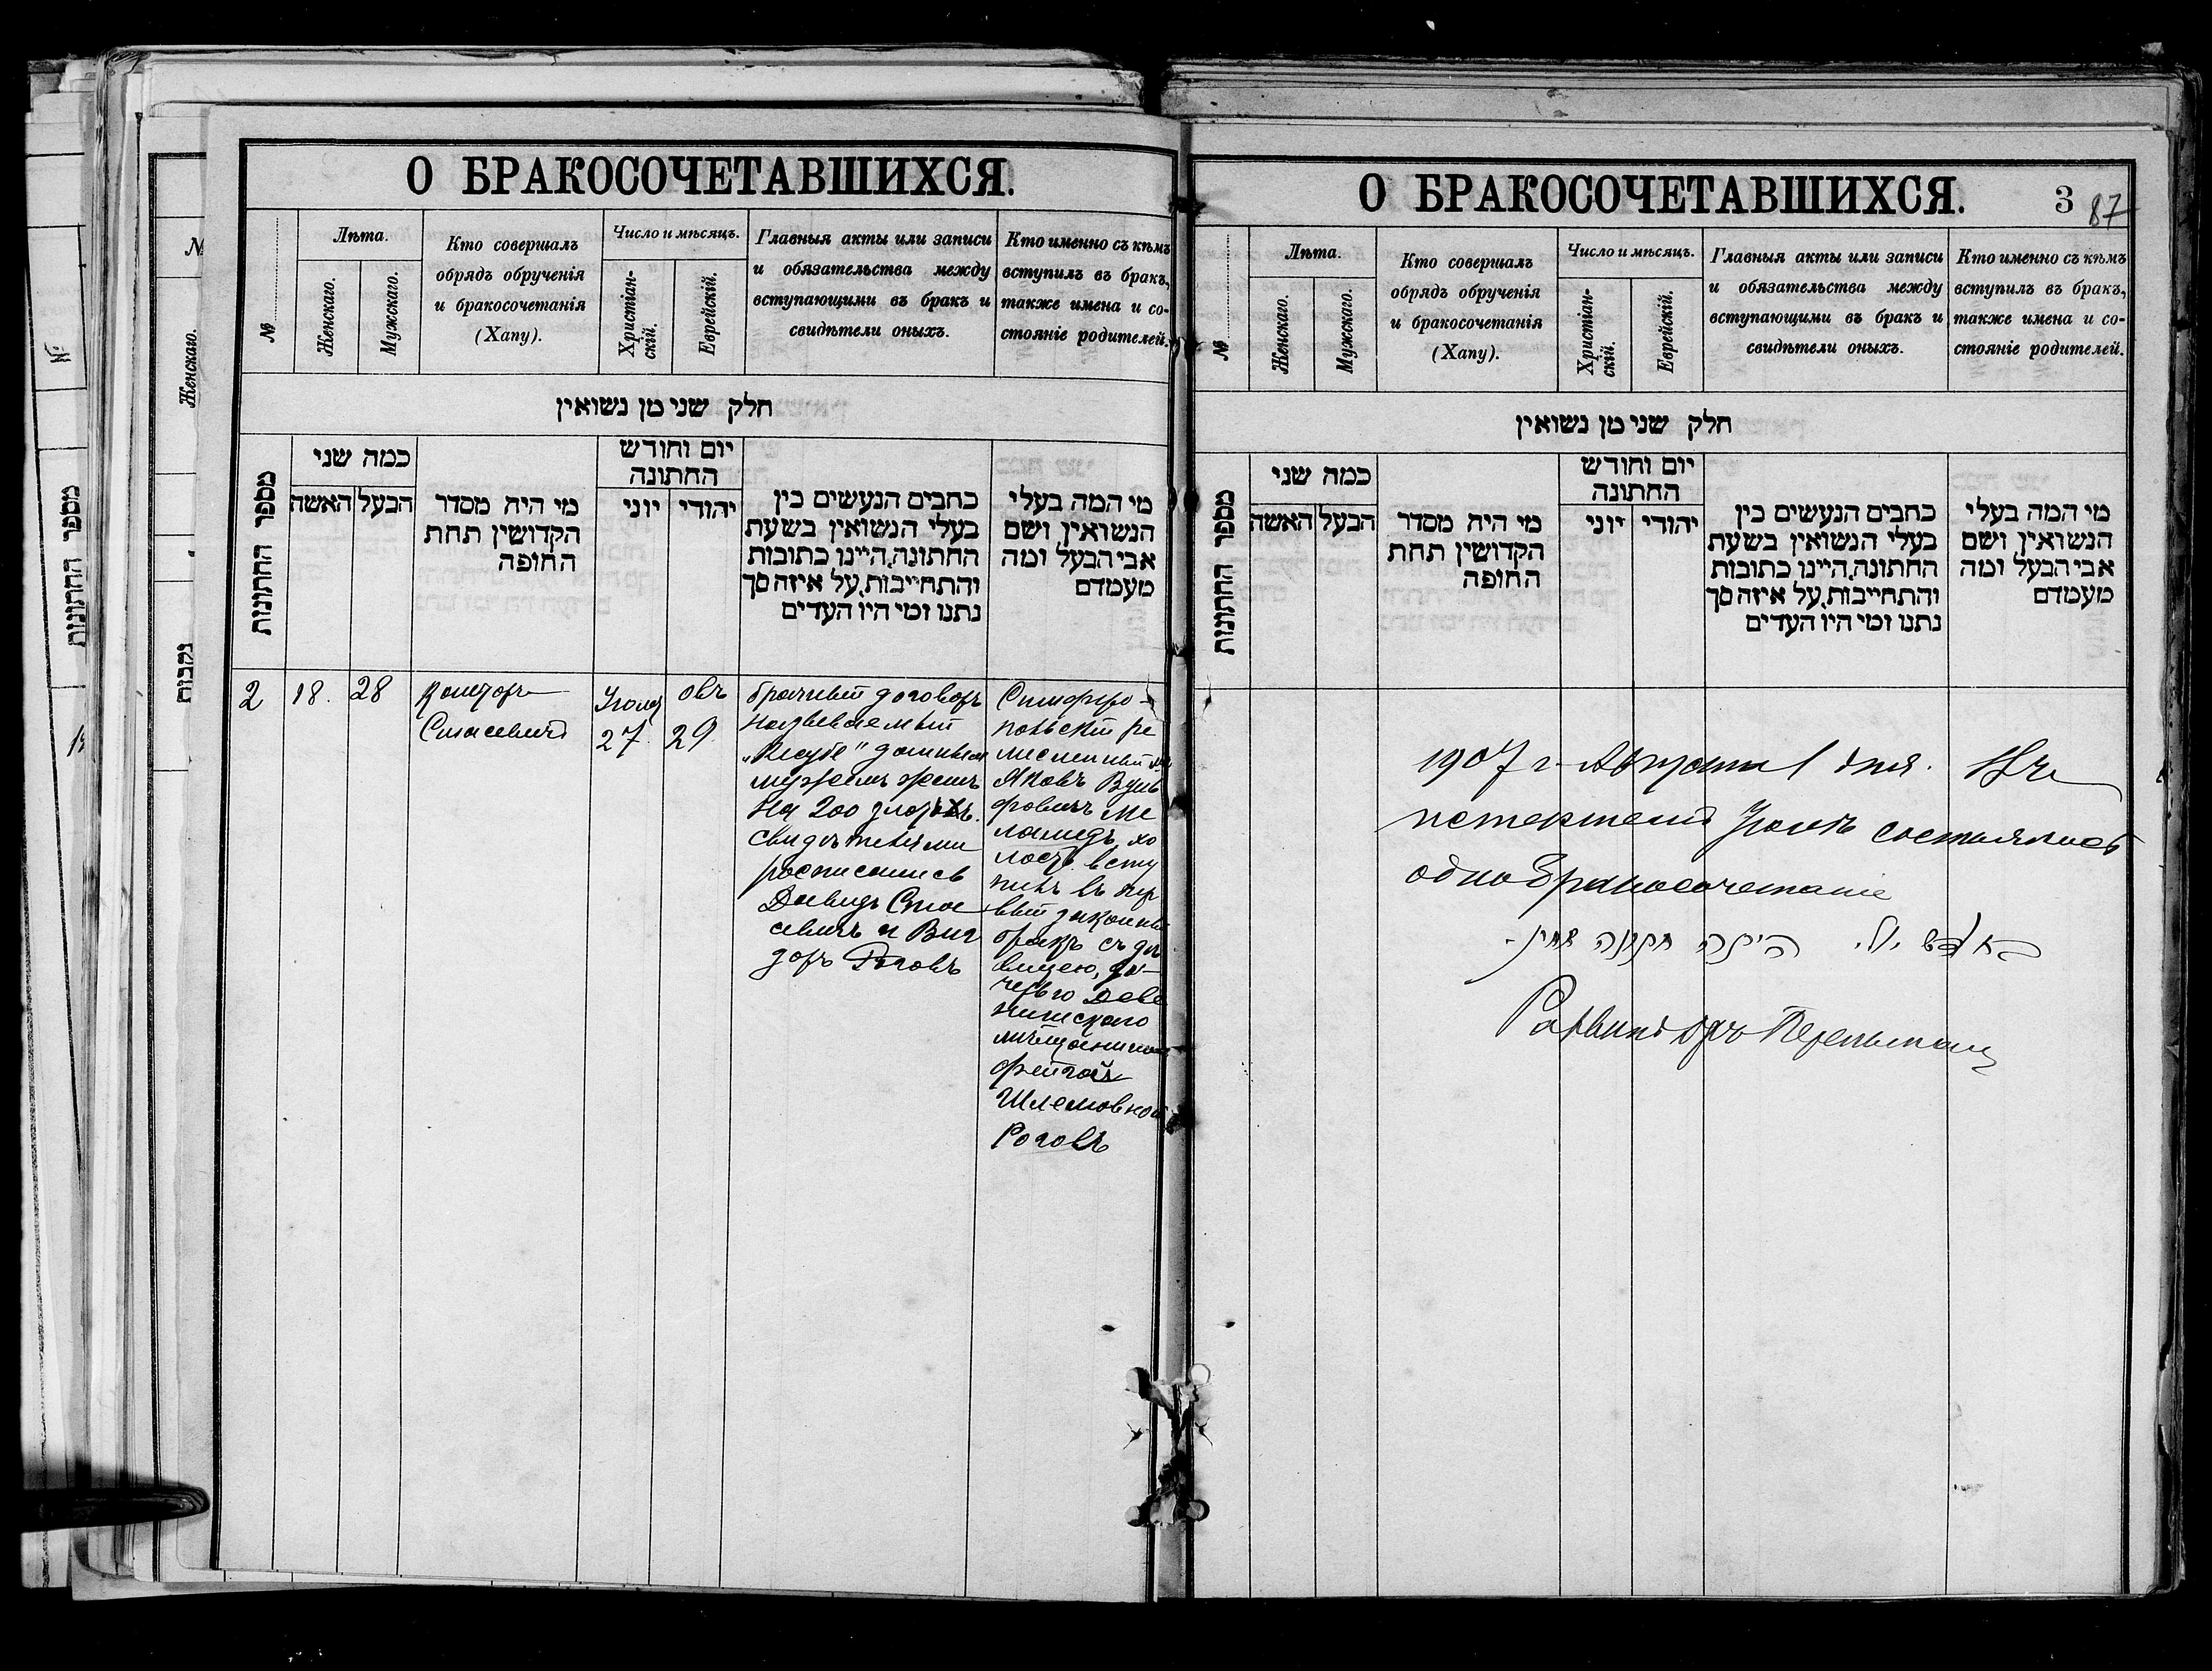 О БРАКОСОЧЕТАВШИХСЯ.
№
Лѣта.
Женскаго.
Мужскаго.
Кто совершалъ
обрядъ обрученія
и бракосочетанія
(Хапу).
Число и мѣсяцъ.
Христіан-
скій.
Еврейскій.
Главныя акты или записи
и обязательства между
вступающими въ бракъ и
свидѣтели оныхъ.
Кто именно съ кѣмъ
вступилъ въ бракъ,
также имена и со-
стояніе родителей.
חלק שני מן נשואין
מספר החתונות
כמה שני
האשה
הבעל
מי היה מסדר
הקדושין תחת
החופה
יום וחודש
החתונה
יוני
יהודי
כתבים הנעשים בין
בעלי הנשואין בשעת
החתונה, היינו כתובות
והתחייבות, על איזה סך
נתנו ומי היו העדים
מי המה בעלי
הנשואין ושם
אבי הבעל ומה
מעמדם
2
18.
28
Спасевичъ
Іюля
27.
овъ
29
брачный договоръ
называемый
данный
мужемъ женѣ
на 200 злотыхъ.
свидѣтелями
росписались
Давидъ Спа
севичъ и Виг
доръ Роговъ
Симферо-
польскій ре
месленный
Яковъ Вуль
фовичъ Ме
ламедъ, хо
лостъ всту
пилъ въ пер
вый законный
бракъ съ дѣ
вицею, до-
черью Деве
нишскаго
мѣщанина
Фейгой
Шлемовной
Роговъ
О БРАКОСОЧЕТАВШИХСЯ.
3
87
№
Лѣта.
Женскаго.
Мужскаго.
Кто совершалъ
обрядъ обрученія
и бракосочетанія
(Хапу).
Число и мѣсяцъ.
Христіан-
скій.
Еврейскій.
Главныя акты или записи
и обязательства между
вступающими въ бракъ и
свидѣтели оныхъ.
Кто именно съ кѣмъ
вступилъ въ бракъ,
также имена и со-
стояніе родителей.
חלק שני מן נשואין
מספר החתונות
כמה שני
האשה
הבעל
מי היה מסדר
הקדושין תחת
החופה
יום וחודש
החתונה
יוני
יהודי
כתבים הנעשים בין
בעלי הנשואין בשעת
החתונה, היינו כתובות
והתחייבות, על איזה סך
נתנו ומי היו העדים
מי המה בעלי
הנשואין ושם
אבי הבעל ומה
מעמדם
1907 г. Августа 1 дня. Въ
истекшемъ Іюлѣ состоялось
одно бракосочетаніе
היתה חתונה אחת
Раввинъ